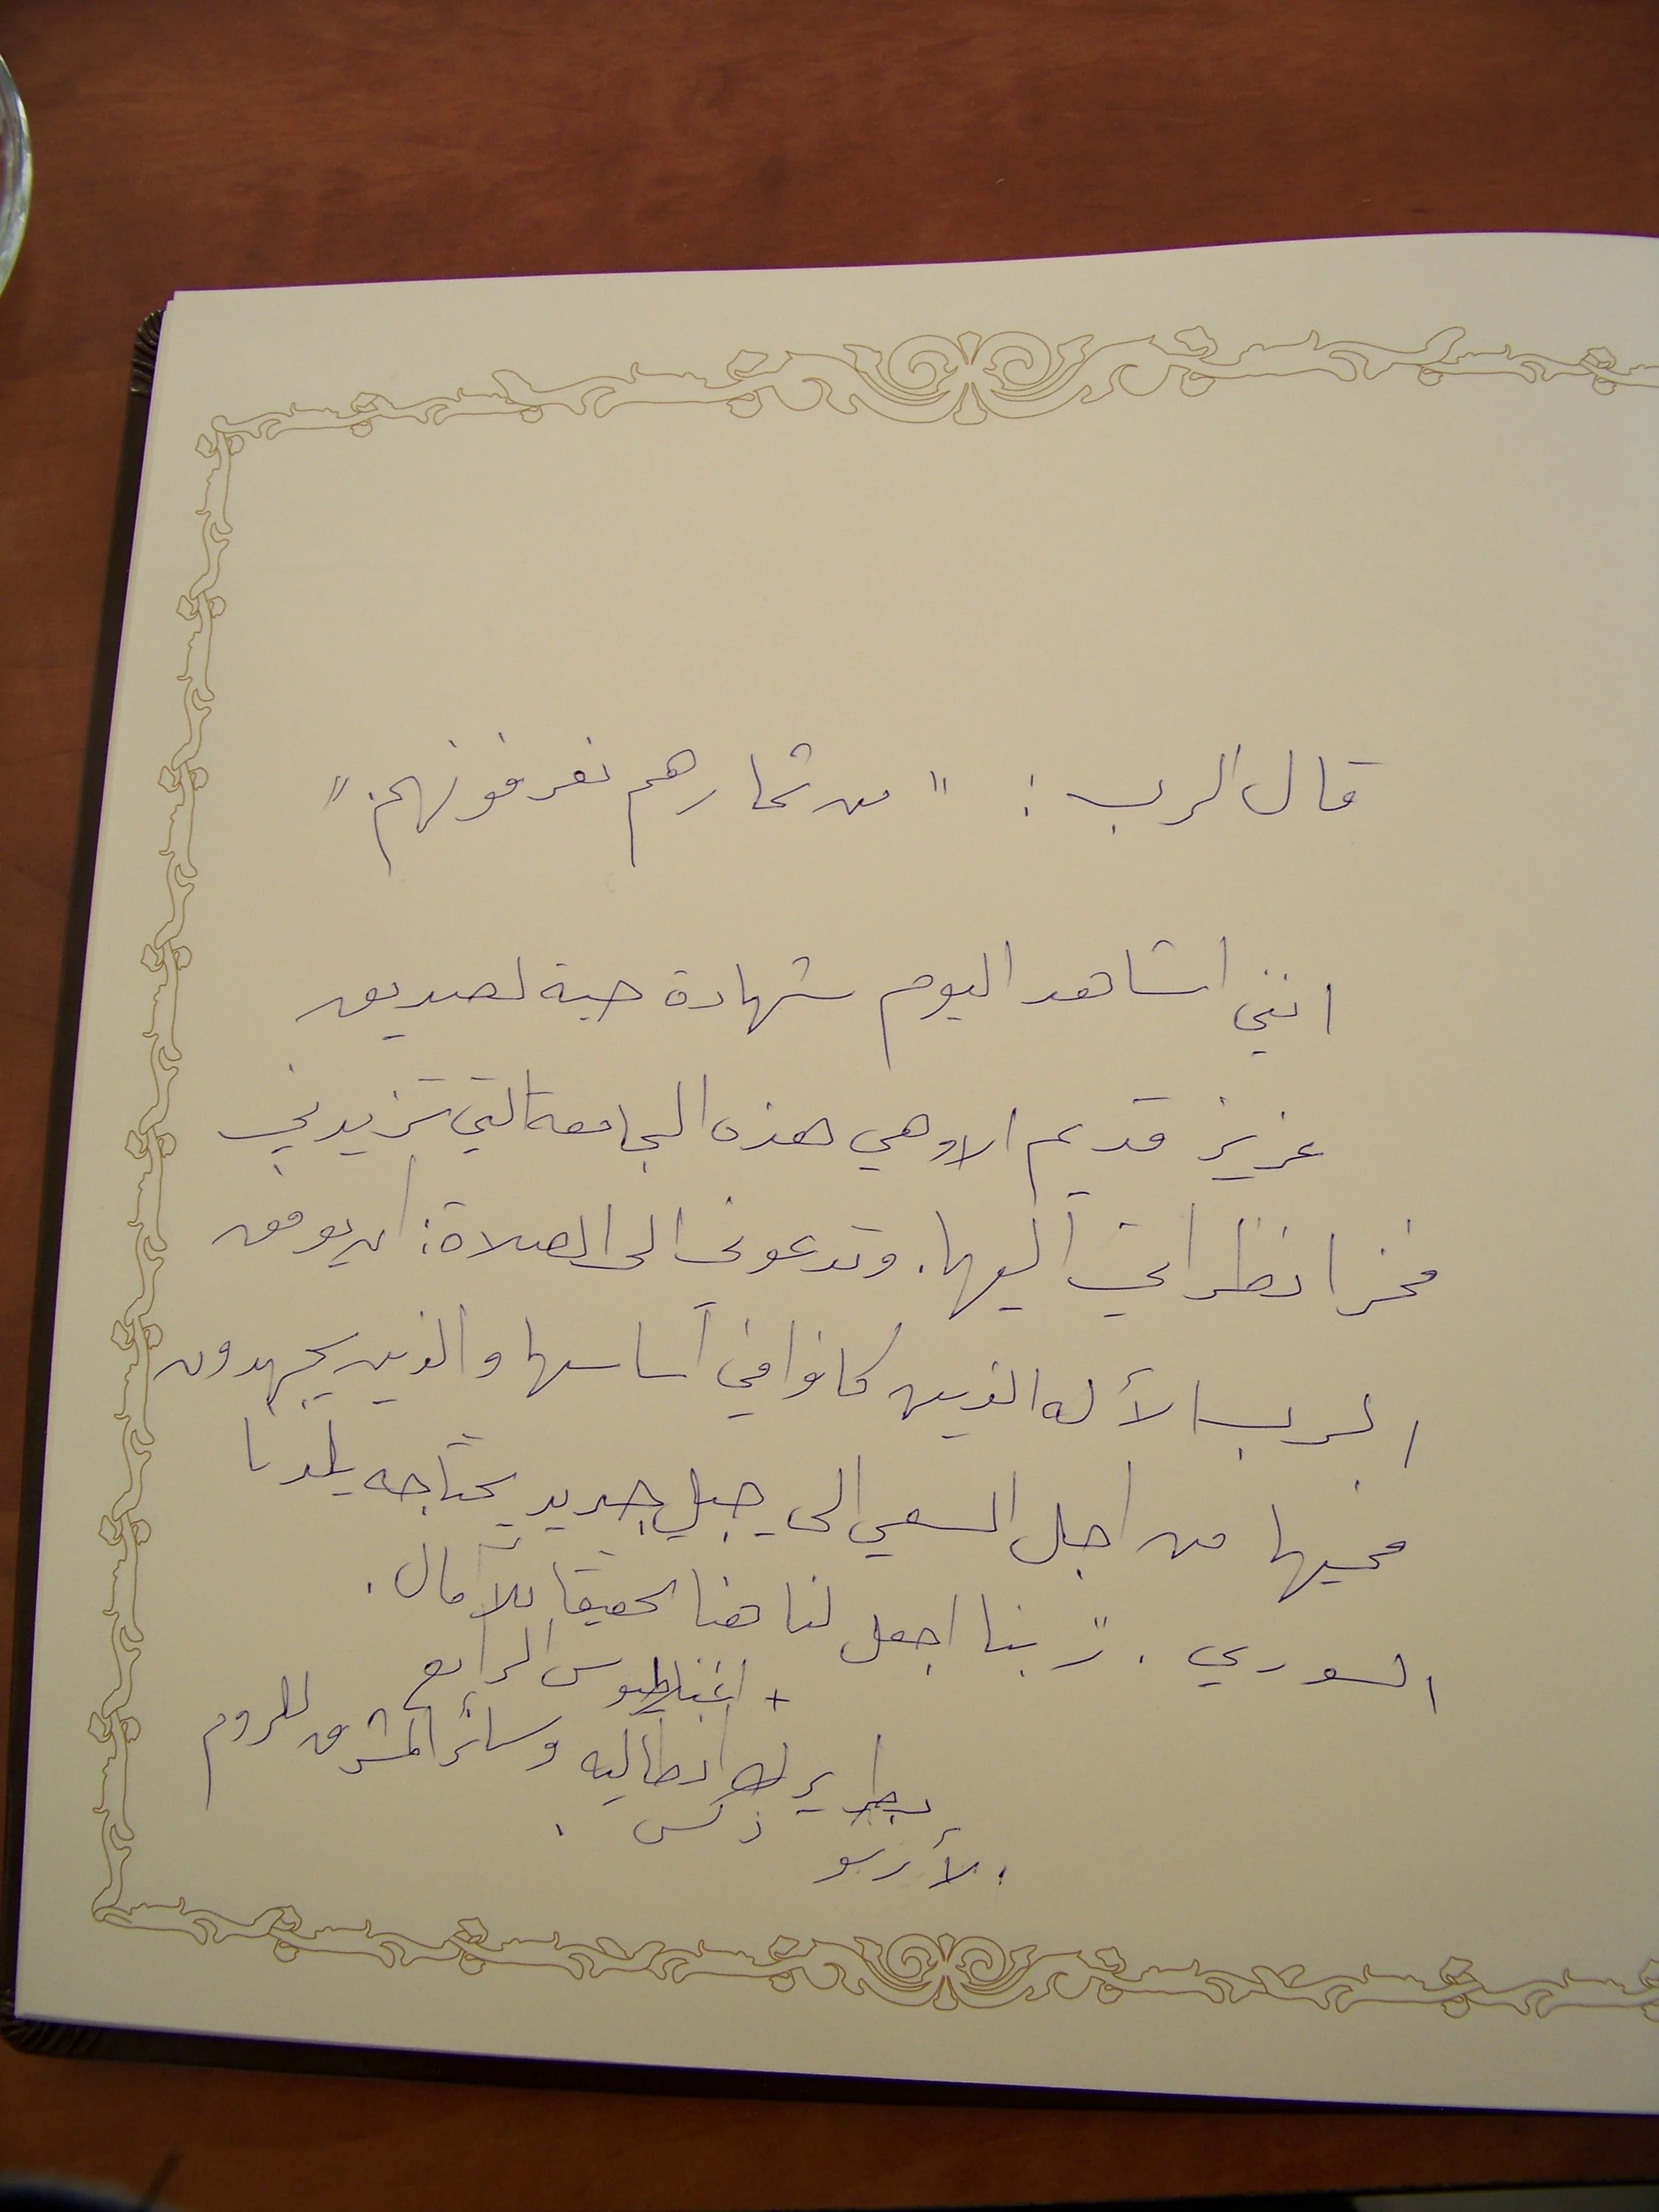 قال الرب : " من ثمارهم تعرفونهم "
انني اشاهد اليوم شهادة حية لصديق
عزيز قديم الا وهي هذه الجامعة التي تزيدني
فخرا نظراتي اليها . وتدعوني الى الصلاة : ان يوفق
الرب الأله الذين كانوا في أساسها والذين يجهدون
من اجل السعي الى جيل جديد يحتاجه بلدنا
السوري . ربنا اجعل لنا هنا تحقيقا للآمال .
+ اغناطيوس الرابع
بطريرك انطاكيه وسائر المشرق للروم
الأرثوذكس .